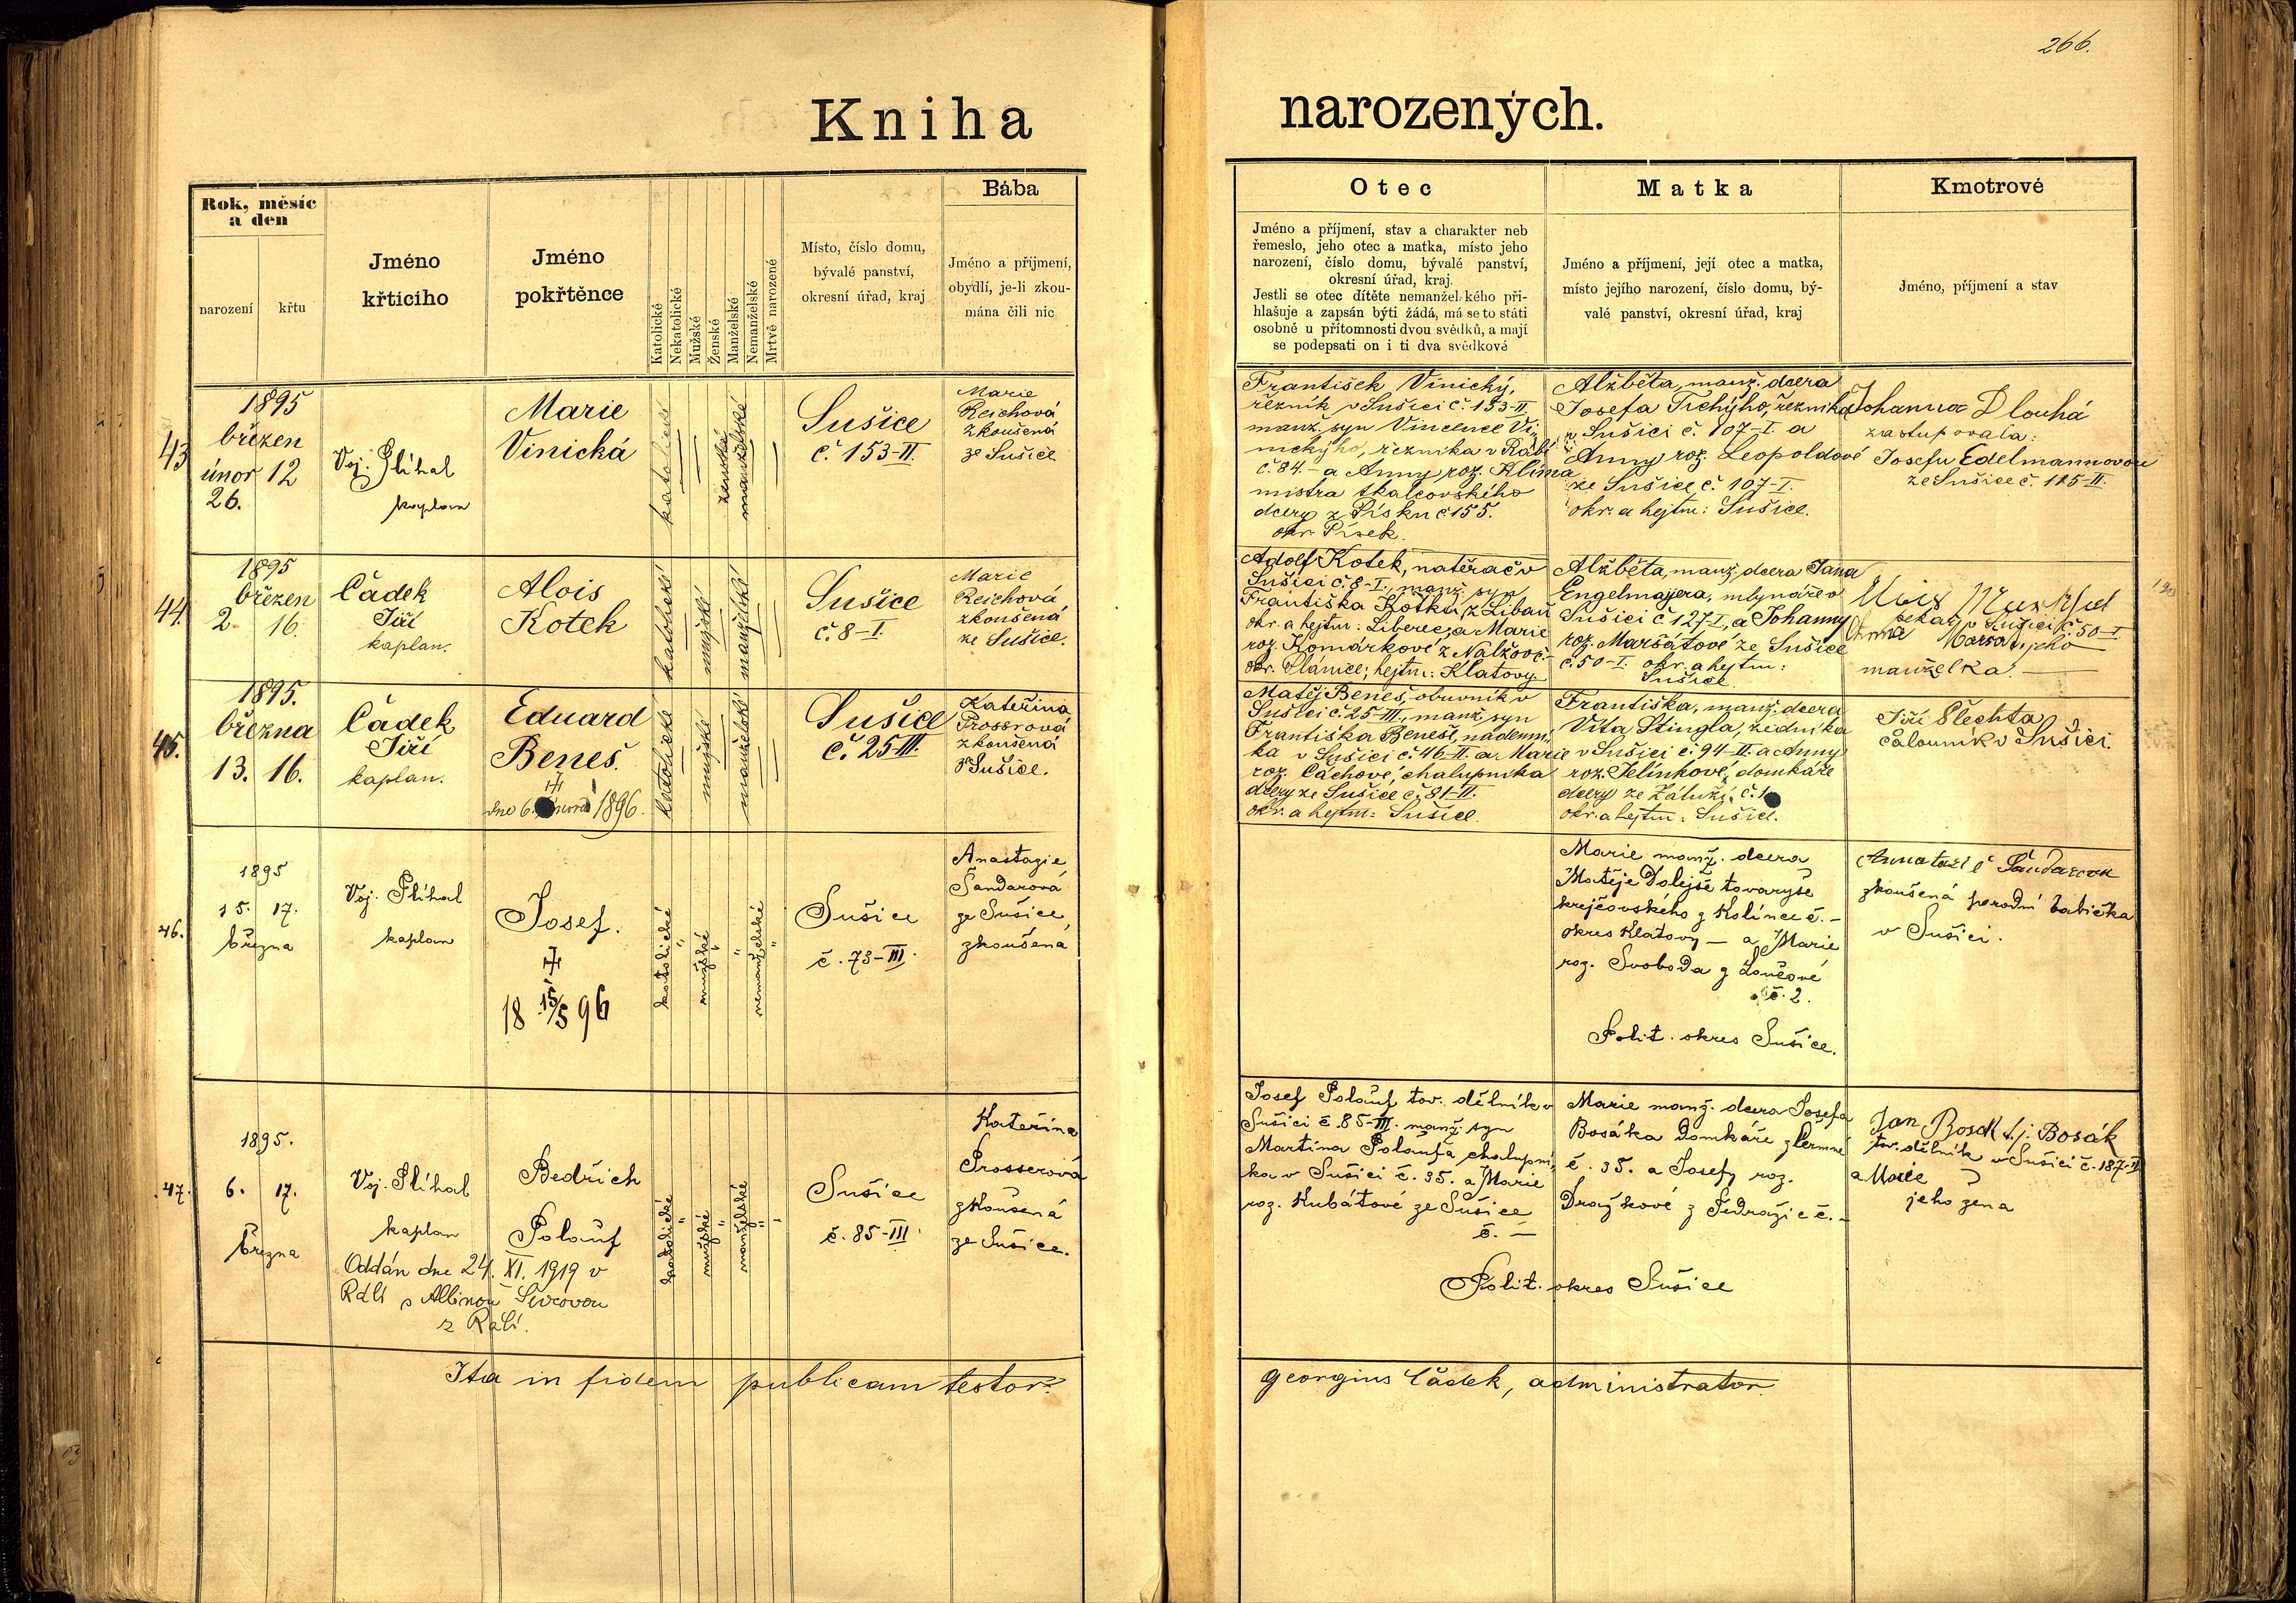 266.
Kniha narozených.
Rok, měsíc
a den
narození
křtu
Jméno
křticího
Jméno
pokřtěnce
Katolické
Nekatolické
Mužské
Ženské
Manželské
Nemanželské
Mrtvě narozené
Místo, číslo domu,
bývalé panství,
okresní úřad, kraj
Bába
Jméno a příjmení,
obydlí, je-li zkou-
mána čili nic
Otec
Jméno a příjmení, stav a charakter neb
řemeslo, jeho otec a matka, místo jeho
narození, číslo domu, bývalé panství,
okresní úřad, kraj.
Jestli se otec dítěte nemanželského při-
hlašuje a zapsán býti žádá, má se to státi
osobně u přítomnosti dvou svědků, a mají
se podepsati on i ti dva svědkové
Matka
Jméno a příjmení, její otec a matka,
místo jejího narození, číslo domu, bý-
valé panství, okresní úřad, kraj
Kmotrové
Jméno, příjmení a stav
43
1895
březen
únor 12
26.
Voj. Slíhal
kaplan
Marie
Vinická
katolické
ženské
manželské
Sušice
č. 153-II.
Marie
Reichová
zkoušená
ze Sušice
František Vinický,
řezník v Sušici č. 153-II.
manž. syn Vincence Vi-
nického, řezníka v Rábí
č. 84. - a Anny roz. Klíma
mistra tkalcovského
dcery z Písku č. 155.
okr. Písek.
Alžběta, manž. dcera
Josefa Tichýho, řezníka
v Sušici č. 107-I. a
Anny roz. Leopoldové
ze Sušice č. 107-I.
okr. a hejtm: Sušice.
Johanna Dlouhá
zastupovala:
Josefu Edelmannovou
ze Sušice č. 115-II.
44.
1895
březen
2. 16.
Čádek
Jiří
kaplan.
Alois
Kotek
katolické
mužské
manželské
Sušice
č. 8-I.
Marie
Reichová
zkoušená
ze Sušice.
Adolf Kotek, natěrač v
Sušici č. 8-I, manž. syn
Františka Kotka, z Libaň
okr. a hejtm: Liberec, a Marie
roz. Komárkové z Nalžov č. -
okr. Plánice; hejtm: Klatovy.
Alžběta, manž. dcera Jana
Engelmajera, mlynáře v
Sušici č. 127-I, a Johanny
roz. Maršátové ze Sušice
č. 50-I. okr. a hejtm:
Sušice
pekař v Sušici č. 50-I
Anna jeho
manželka. —
45.
1895.
března
13. 16.
Čádek
Jiří
kaplan.
Eduard
Beneš.
dne 6. 1896.
katolické
mužské
manželské
Sušice
č. 25-III.
Kateřina
Prosrová
zkoušená
v Sušice.
Matěj Beneš, obuvník v
Sušici č. 25-III., manž. syn
Františka Beneše, nádenní-
ka v Sušici č. 46-II. a Marie
roz. Cáchové, chalupníka
dcery ze Sušice č. 81-II.
okr. a hejtm: Sušice.
Františka, manž. dcera
Víta Stingla, zedníka
v Sušici č. 94-II. a Anny
roz. Jelínkové, domkáře
dcery ze Záluží, č. 1
okr. a hejtm: Sušice.
Jiří Plechta
čalouník v Sušici.
46.
1895
15. 17.
března
Voj. Slíhal
kaplan
Josef.
18 15/5 96
katolické
mužské
nemanželské
Sušice
č. 73-III.
Anastazie
Šandarová
ze Sušice,
zkoušená
Marie manž. dcera
Matěje Dolejše tovaryše
krejčovského z Kolínce č. -
okres Klatovy — a Marie
roz. Svoboda z Lonéové
č. 2.
Polit. okres Sušice.
zkoušená porodní babička
v Sušici.
47.
1895.
6. 17.
března
Voj. Slíhal
kaplan
Bedřich
Polauf
Oddán dne 24. XI. 1919 v
Rábí s Albinou
z Rabí.
katolické
mužské
manželské
Sušice
č. 85-III.
Kateřina
Prosserová
zkoušená
ze Sušice.
Josef Polauf tov. dělník v
Sušici č. 85-III. manž. syn
Martina Polaufa chalupní-
ka v Sušici č. 35. a Marie
roz. Kubátové ze Sušice
č. —
Marie manž. dcera Josefa
Bosáka domkáře z Čermné
č. 35. a Josefy roz.
Dražkové z Jedražic č. -
Polit. okres Sušice
Jan Bosák t.j. Bosák
tov. dělník v Sušici č. 187-II
a Marie
jeho žena
Ita in fidem publicam testor:
Georgius Čádek, administrator